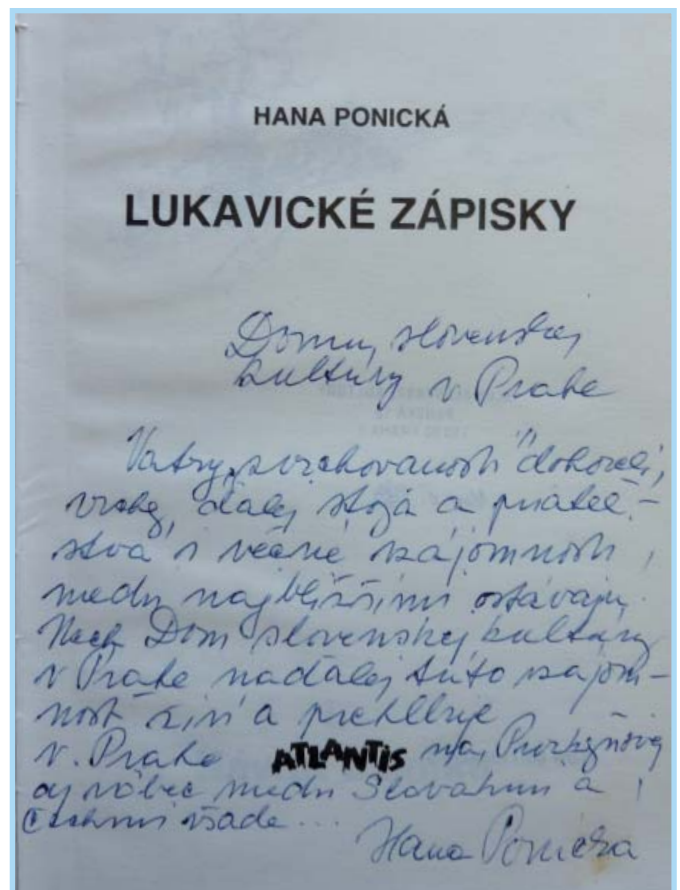 HANA PONICKÁ
LUKAVICKÉ ZÁPISKY
Domu slovenskej
kultúry v Prahe
Vatry „zvrchovanosti" dohoreli,
vrchy ďalej stoja a priateľ-
stvá i večné vzájomnosti
medzi najbližšími ostávajú.
Nech Dom slovenskej kultúry
v Prahe naďalej túto vzájom-
nosť živí a prehlbuje
v Prahe ATLANTIS na Purkyňovej
aj vôbec medzi Slovákmi a
Čechmi všade...
Hana Ponická